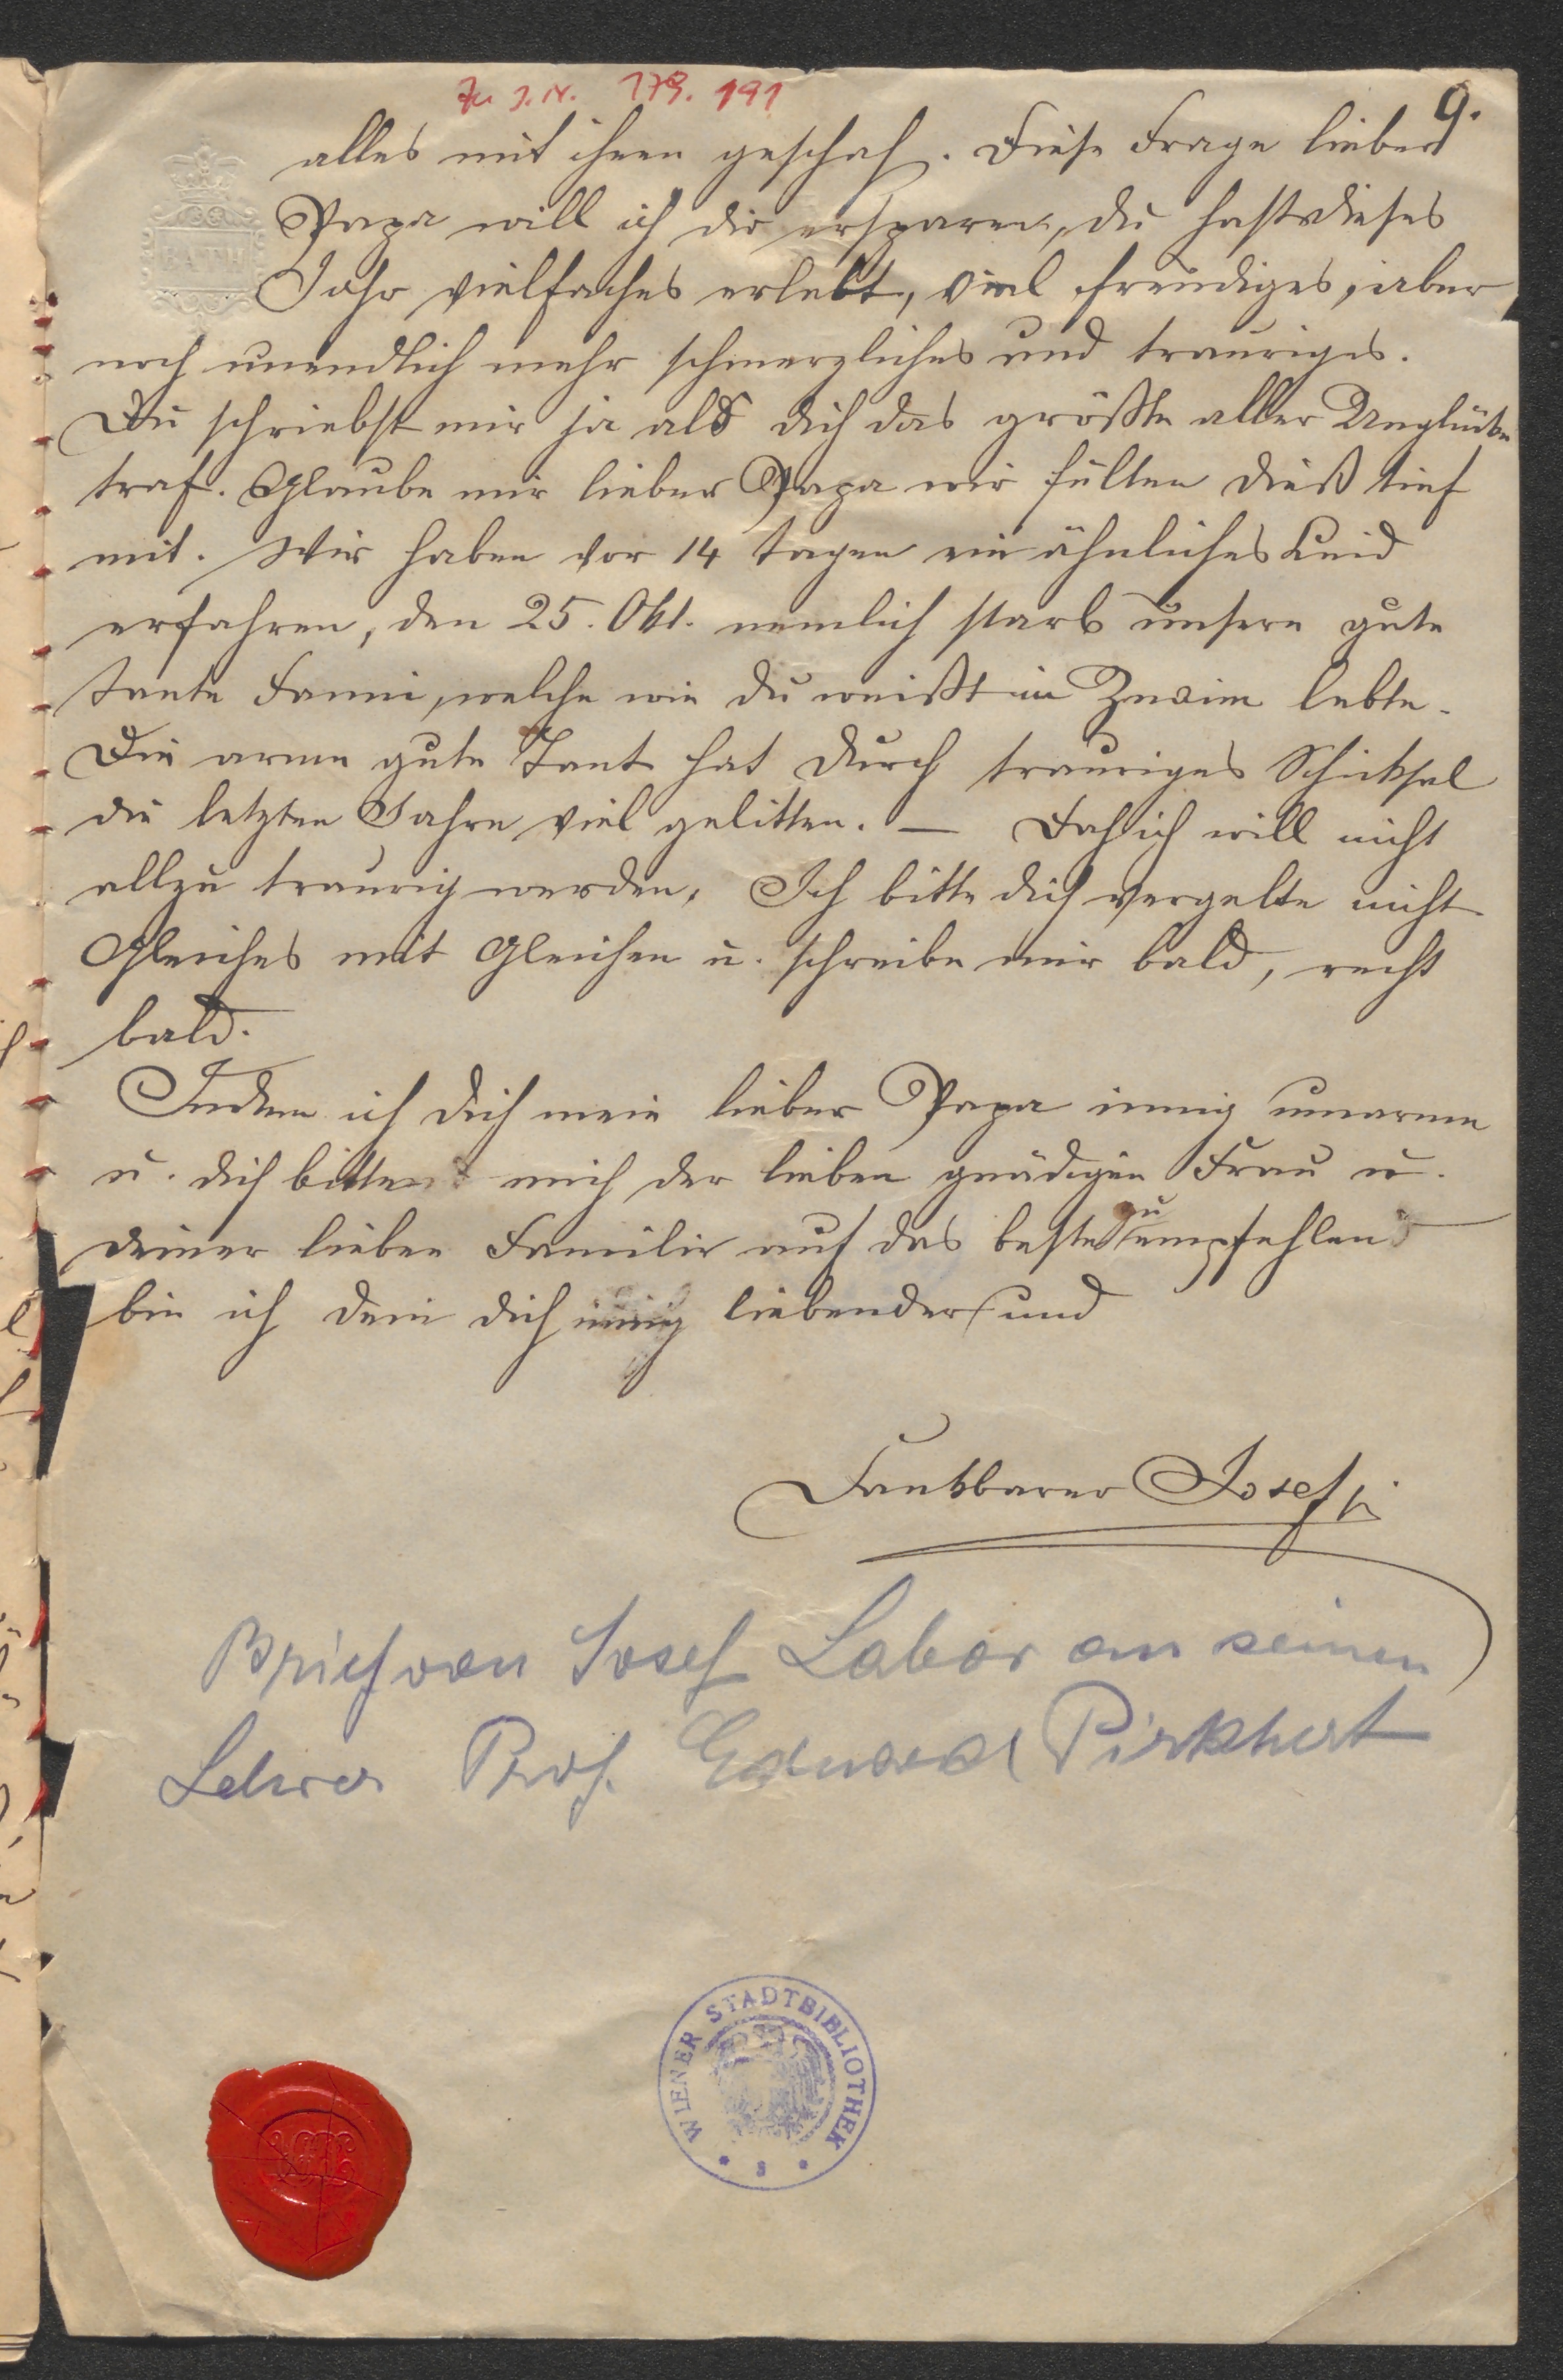 Zu J.N. 179.191
9.
alles mit ihnen geschah. Diese Frage lieber
Papa will ich dir ersparen, du hast dieses
BATH
Jahr vielfaches erlebt, viel freudiges, aber
noch unendlich mehr schmerzliches und trauriges.
Du schriebst mir ja als dich das größte aller Unglücke
traf. Glaube mir lieber Papa wir fülten dieß tief
mit. Wir haben vor 14 Tagen ein ähnliches Leid
erfahren, den 25. Okt. nemlich starb unsere gute
Tante Fanni, welche wie du weißt in Znaim lebte.
Die arme gute Tant hat durch trauriges Schicksal
die letzten Jahre viel gelitten. — Doch ich will nicht
allzu traurig werden. Ich bitte dich vergelte nicht
Gleiches mit Gleichen u. schreibe mir bald, recht
bald.
Indem ich dich mein lieber Papa innig umarme
u. dich bitte mich der lieben gnädigen Frau u.
deiner lieben Familie auf das beste zu empfehlen
bin ich dein dich innig liebender und
Dankbarer Josef
Brief von Josef Labor an seinen
Lehrer Prof. Eduard Pirkhert
WIENER STADTBIBLIOTHEK